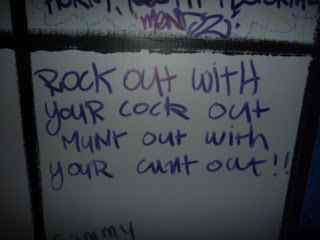 ROCK OUT WITH
YOUR COCK OUT
MUNT OUT WITH
YOUR CUNT OUT!!